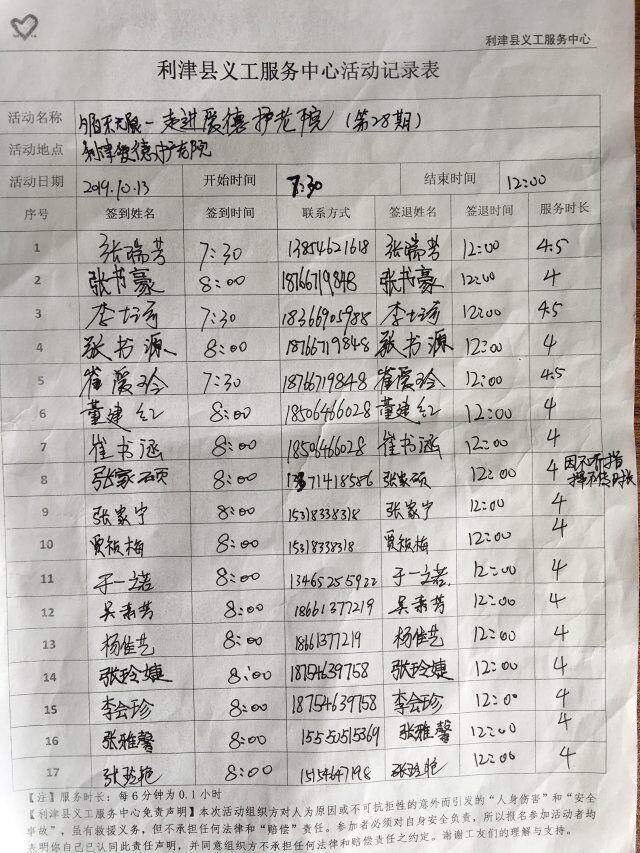 利津县义工服务中心
利津县义工服务中心活动记录表
活动名称 走进爱德护老院（第28期）
活动地点 利津爱德护老院
活动日期 2019.10.13 开始时间 7:30 结束时间 12:00
序号 签到姓名 签到时间 联系方式 签退姓名 签退时间 服务时长
1 张瑞芳 7:30 13854621618 张瑞芳 12:00 4.5
2 张书豪 8:00 18766719848 张书豪 12:00 4
3 7:30 18366905988 12:00 4.5
4 张书源 8:00 18766719848 张书源 12:00 4
5 崔爱玲 7:30 18766719848 崔爱玲 12:00 4.5
6 董建红 8:00 18506466028 董建红 12:00 4
7 崔书涵 8:00 18506466028 崔书涵 12:00 4
8 张家硕 8:00 张家硕 12:00 4 因不听指
9 张家宁 8:00 15318338318 张家宁 12:00 4
10 贾敏梅 8:00 15318338318 贾敏梅 12:00 4
11 于一诺 8:00 13465255922 于一诺 12:00 4
12 吴素芳 8:00 18661377219 吴素芳 12:00 4
13 杨佳艺 8:00 18661377219 杨佳艺 12:00 4
14 张玲婕 8:00 18754639758 张玲婕 12:00 4
15 李会珍 8:00 18754639758 李会珍 12:00 4
16 张雅馨 8:00 15550515369 张雅馨 12:00 4
17 张玲艳 8:00 15154647198 张玲艳 12:00 4
【注】服务时长：每6分钟为0.1小时
【利津县义工服务中心免责声明】本次活动组织方对人为原因或不可抗拒性的意外而引发的“人身伤害”和“安全
事故”，虽有救援义务，但不承担任何法律和“赔偿”责任。参加者必须对自身安全负责，所以报名参加活动者均
表明你自己已认同此责任声明，并同意组织方不承担任何法律和赔偿责任之约定。谢谢工友们的理解与支持。